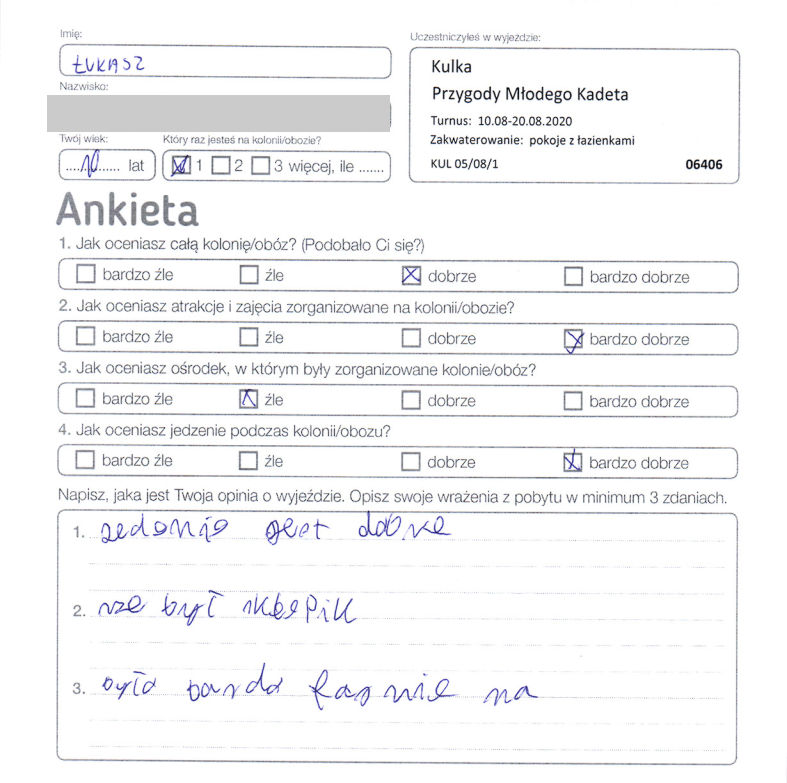 Imię:
ŁUKASZ
Nazwisko:
Twój wiek:
Który raz jesteś na kolonii/obozie?
....10...... lat
1 2 3 więcej, ile .......
Uczestniczyłeś w wyjeździe:
Kulka
Przygody Młodego Kadeta
Turnus: 10.08-20.08.2020
Zakwaterowanie: pokoje z łazienkami
KUL 05/08/1 06406
Ankieta
1. Jak oceniasz całą kolonię/obóz? (Podobało Ci się?)
bardzo źle źle dobrze bardzo dobrze
2. Jak oceniasz atrakcje i zajęcia zorganizowane na kolonii/obozie?
bardzo źle źle dobrze bardzo dobrze
3. Jak oceniasz ośrodek, w którym były zorganizowane kolonie/obóz?
bardzo źle źle dobrze bardzo dobrze
4. Jak oceniasz jedzenie podczas kolonii/obozu?
bardzo źle źle dobrze bardzo dobrze
Napisz, jaka jest Twoja opinia o wyjeździe. Opisz swoje wrażenia z pobytu w minimum 3 zdaniach.
1.
2. był
3. na